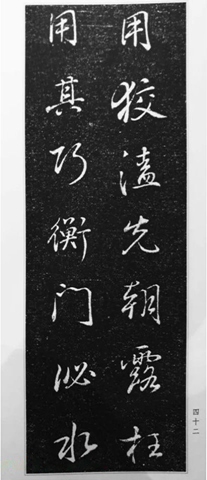 用狡溘先朝露枉
用其巧衡门泌水
四十二